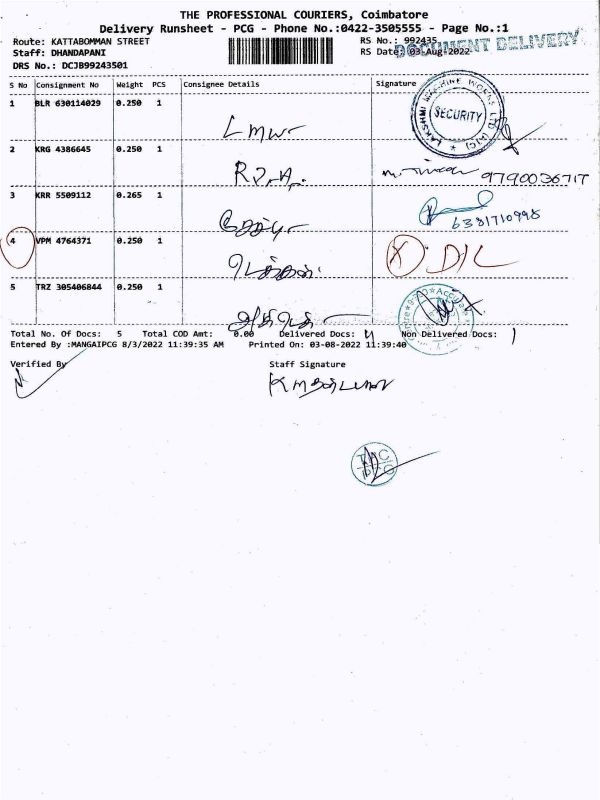 THE PROFESSIONAL COURIERS, Coimbatore
Delivery Runsheet - PCG - Phone No.:0422-3505555 - Page No.:1
Route: KATTABOMMAN STREET
Staff: DHANDAPANI
DRS No.: DCJB99243501
RS No.: 992435
RS Date: 03-Aug-2022
DOCUMENT DELIVERY
S No Consignment No Weight PCS Consignee Details Signature
1 BLR 630114029 0.250 1 LMW
LAKSHMI MACHINE WORKS LTD
SECURITY
2 KRG 4386645 0.250 1 9790036717
3 KRR 5509112 0.265 1 6381710998
4 VPM 4764371 0.250 1 X D/L
5 TRZ 305406844 0.250 1
Total No. Of Docs: 5 Total COD Amt: 0.00 Delivered Docs: 4 Non Delivered Docs: 1
Entered By :MANGAIPCG 8/3/2022 11:39:35 AM Printed On: 03-08-2022 11:39:40
Verified By Staff Signature